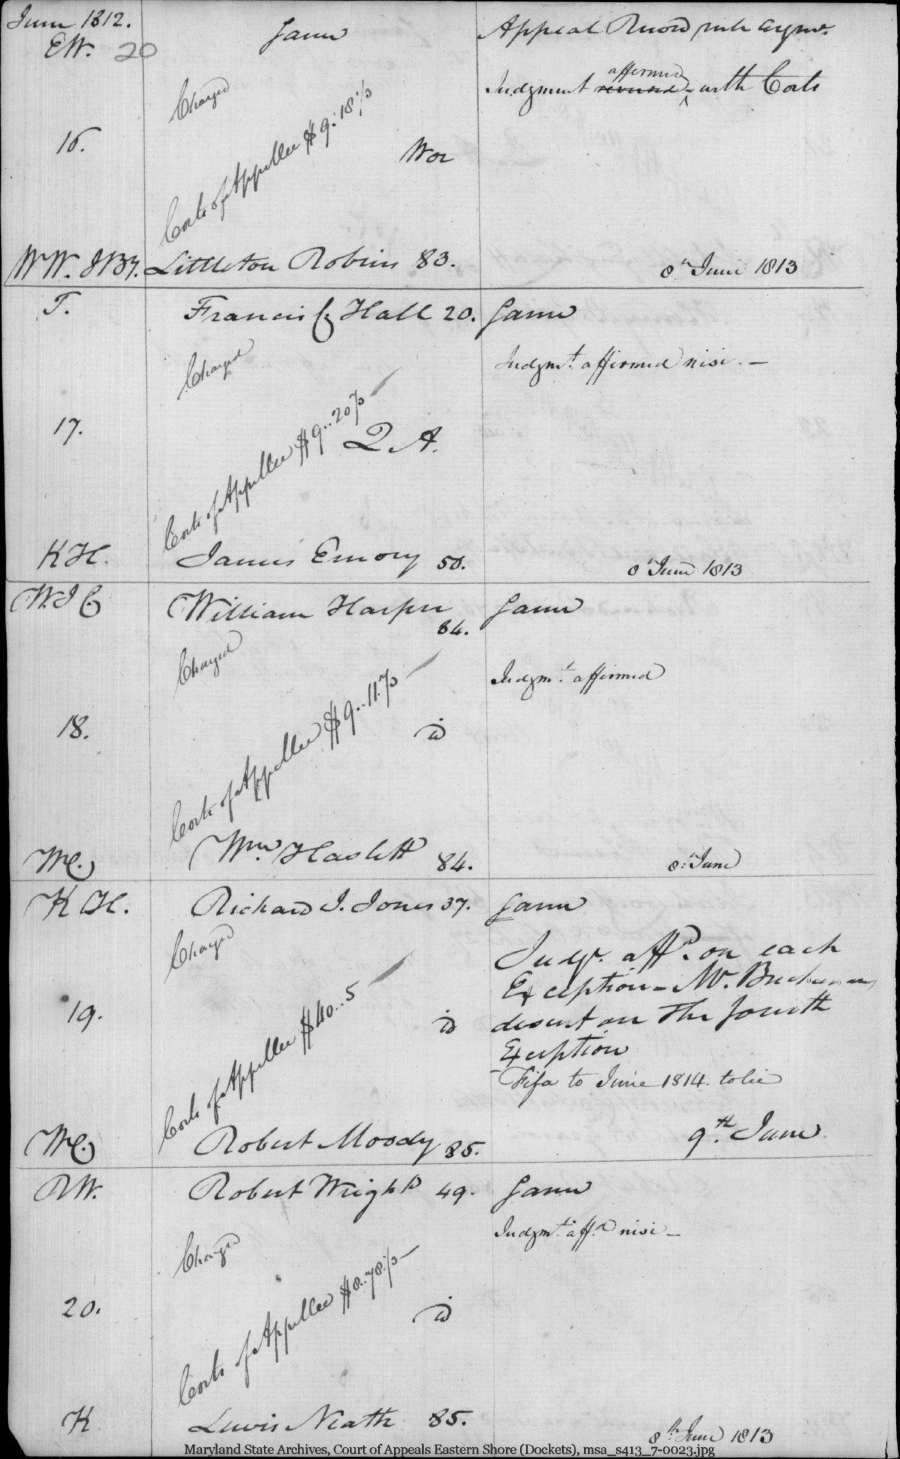 June 1812.
EW. 20
Same
Appeal Record rule argmt.
Charged
affirmed
Judgment reversed with Costs
16.
Costs of Appellee $9.18⅓
Wor
WW. JB3. Littleton Robins 83.
8th June 1813
T.
Francis Hall 20. Same
Charged
Judgmt. affirmed nisi. —
17.
Costs of Appellee $9..20⅓
Q A.
KH. James Emory 50.
8 June 1813
WJC William Harper 84. Same
Charged
Judgmt. affirmed
18.
Costs of Appellee $9..11⅓
id
WC. Wm. Haslett 84.
8: June
KH. Richard I. Jones 37. Same
Charged
Judgt. affd. on each
Exception — Mr. Buchanan
19.
id
disent on the fourth
Exception
Costs of Appellee $40..5
Fifa to June 1814. to lie
WC. Robert Moody 85.
9th. June
RW. Robert Wright 49. Same
Charged
Judgmt. affd. nisi —
20.
Costs of Appellee $8..78⅓
id
K Lewis Neath 85.
8th June 1813
Maryland State Archives, Court of Appeals Eastern Shore (Dockets), msa_s413_7-0023.jpg